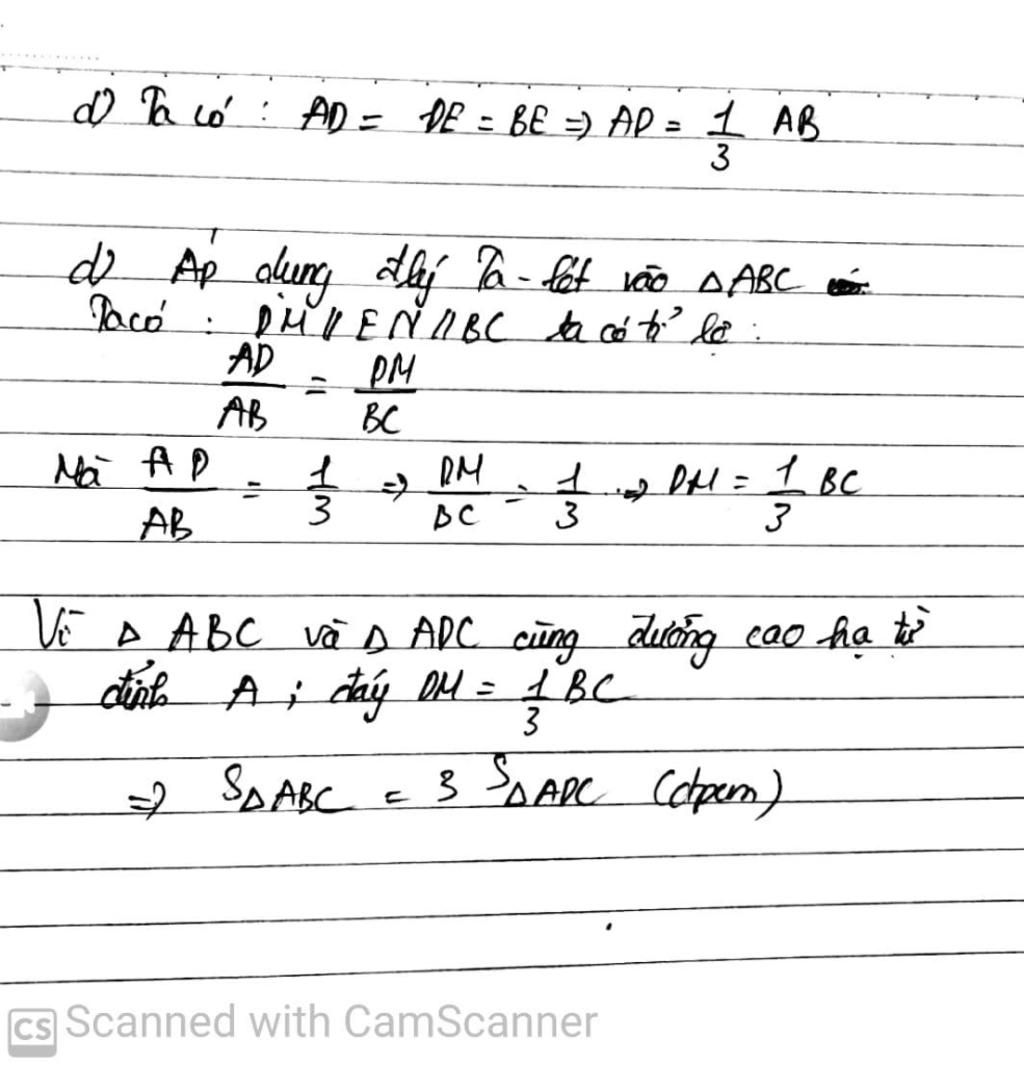 d) Ta có : AD = DE = BE => AD = 1/3 AB
d) Áp dụng đlý Ta-lét vào △ABC
Ta có : DM // EN // BC ta có tỉ lệ :
AD/AB = DM/BC
Mà AD/AB = 1/3 => DM/BC = 1/3 => DM = 1/3 BC
Vì △ ABC và △ ADC cùng đường cao hạ từ
đỉnh A ; đáy DM = 1/3 BC
=> S△ABC = 3 S△ADC (đpcm)
CS Scanned with CamScanner